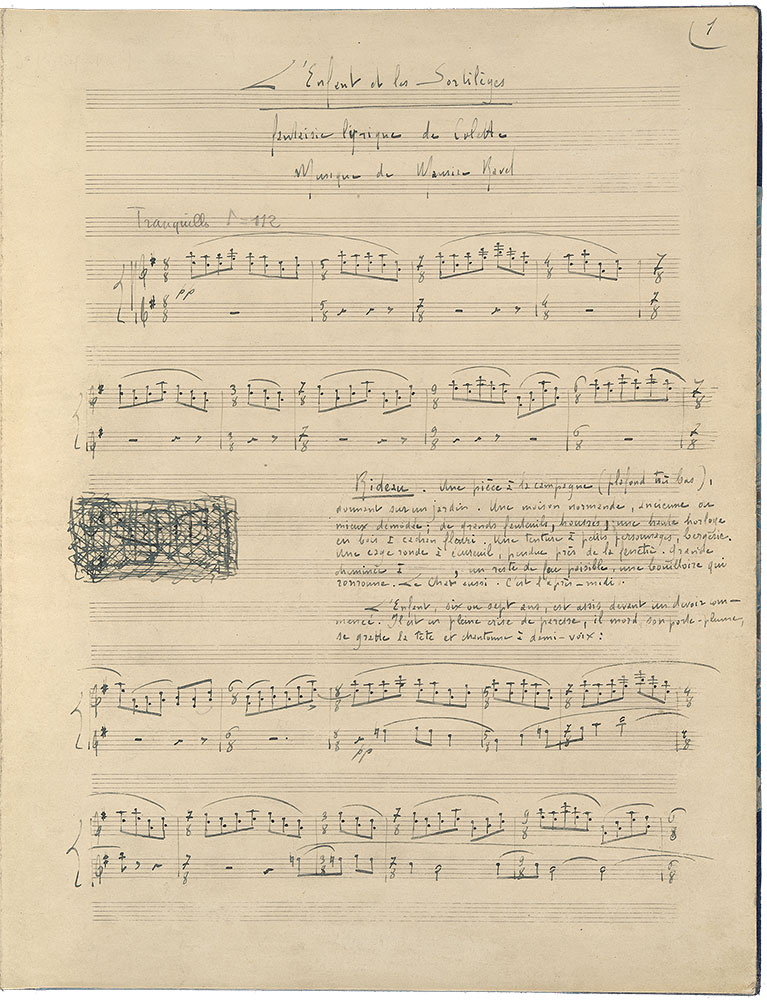 1
L'Enfant et les Sortilèges
fantaisie lyrique de Colette
Musique de Maurice Ravel
Tranquillo ♪ = 112
8 8 5 8 7 8 4 8 7 8
pp
8 8 5 8 7 8 4 8 7 8
3 8 7 8 9 8 6 8 7 8
3 8 7 8 9 8 6 8 7 8
Rideau. Une pièce à la campagne (plafond très bas),
donnant sur un jardin. Une maison normande, ancienne ou
mieux démodée; de grands fauteuils, houssés; une haute horloge
en bois à cadran fleuri. Une tenture à petits personnages, bergerie.
Une cage ronde à écureuil, pendue près de la fenêtre. Grande
cheminée à , un reste de feu paisible, une bouilloire qui
ronronne. Le Chat aussi. C'est l'après-midi.
L'Enfant, six ou sept ans, est assis devant un devoir com-
mencé. Il est en pleine crise de paresse, il mord son porte-plume,
se gratte la tête et chantonne à demi-voix:
6 8 8 8 5 8 7 8 4 8
6 8 8 8 5 8 7 8 4 8
pp
7 8 3 8 7 8 9 8 6 8
7 8 3 8 7 8 9 8 6 8